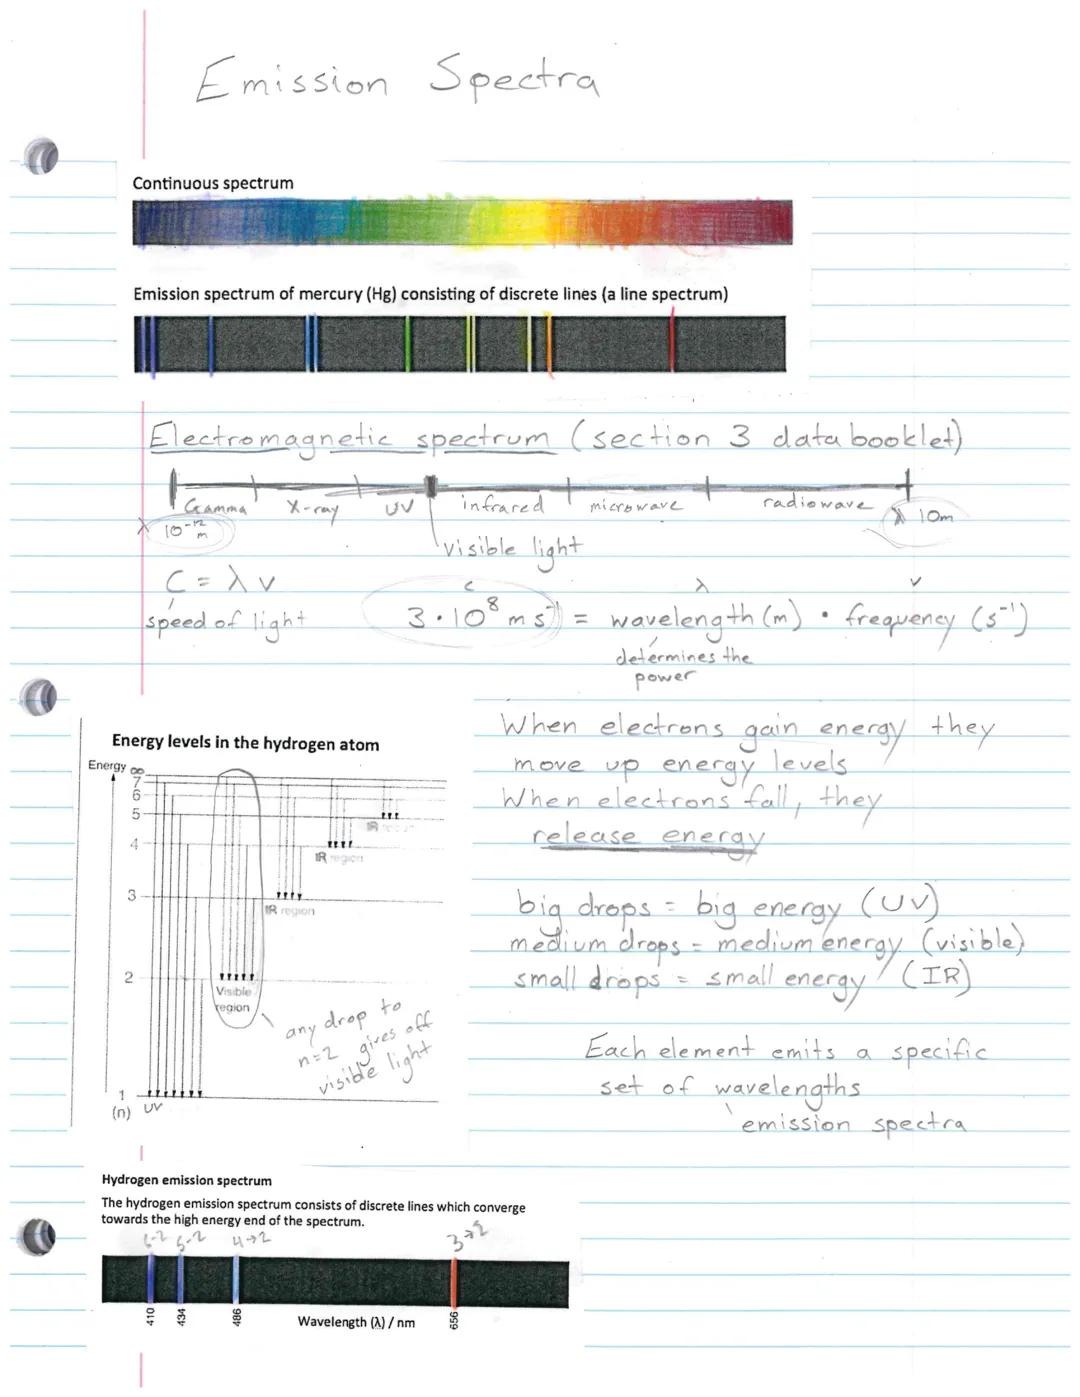 Emission Spectra
Continuous spectrum
Emission spectrum of mercury (Hg) consisting of discrete lines (a line spectrum)
Electromagnetic spectrum (section 3 data booklet)
Gamma X-ray UV infrared microwave radiowave
λ 10⁻¹² m
λ 10m
visible light
C = λ ν
speed of light
c λ ν
3·10⁸ m s⁻¹ = wavelength (m) • frequency (s⁻¹)
determines the
power
Energy levels in the hydrogen atom
Energy
∞
7
6
5
4
3
2
1
(n)
UV
Visible
region
IR region
IR region
IR
any drop to
n=2 gives off
visible light
When electrons gain energy they
move up energy levels
When electrons fall, they
release energy
big drops = big energy (UV)
medium drops = medium energy (visible)
small drops = small energy (IR)
Each element emits a specific
set of wavelengths
emission spectra
Hydrogen emission spectrum
The hydrogen emission spectrum consists of discrete lines which converge
towards the high energy end of the spectrum.
6-2 5-2 4→2 3→2
410 434 486 656
Wavelength (λ) / nm